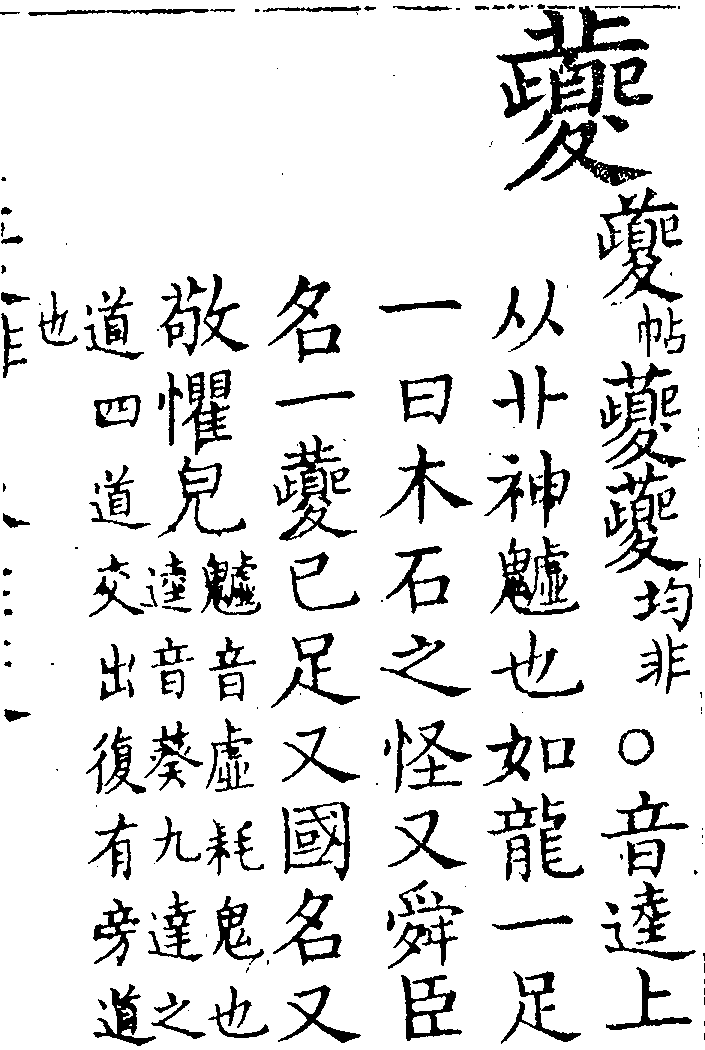 夔
夔帖夔夔均非○音逵上
从卝神魖也如龍一足
一曰木石之怪又舜臣
名一夔已足又國名又
敬懼皃魖音虛耗鬼也
逵音葵九達之
道四道交出復有旁道
也